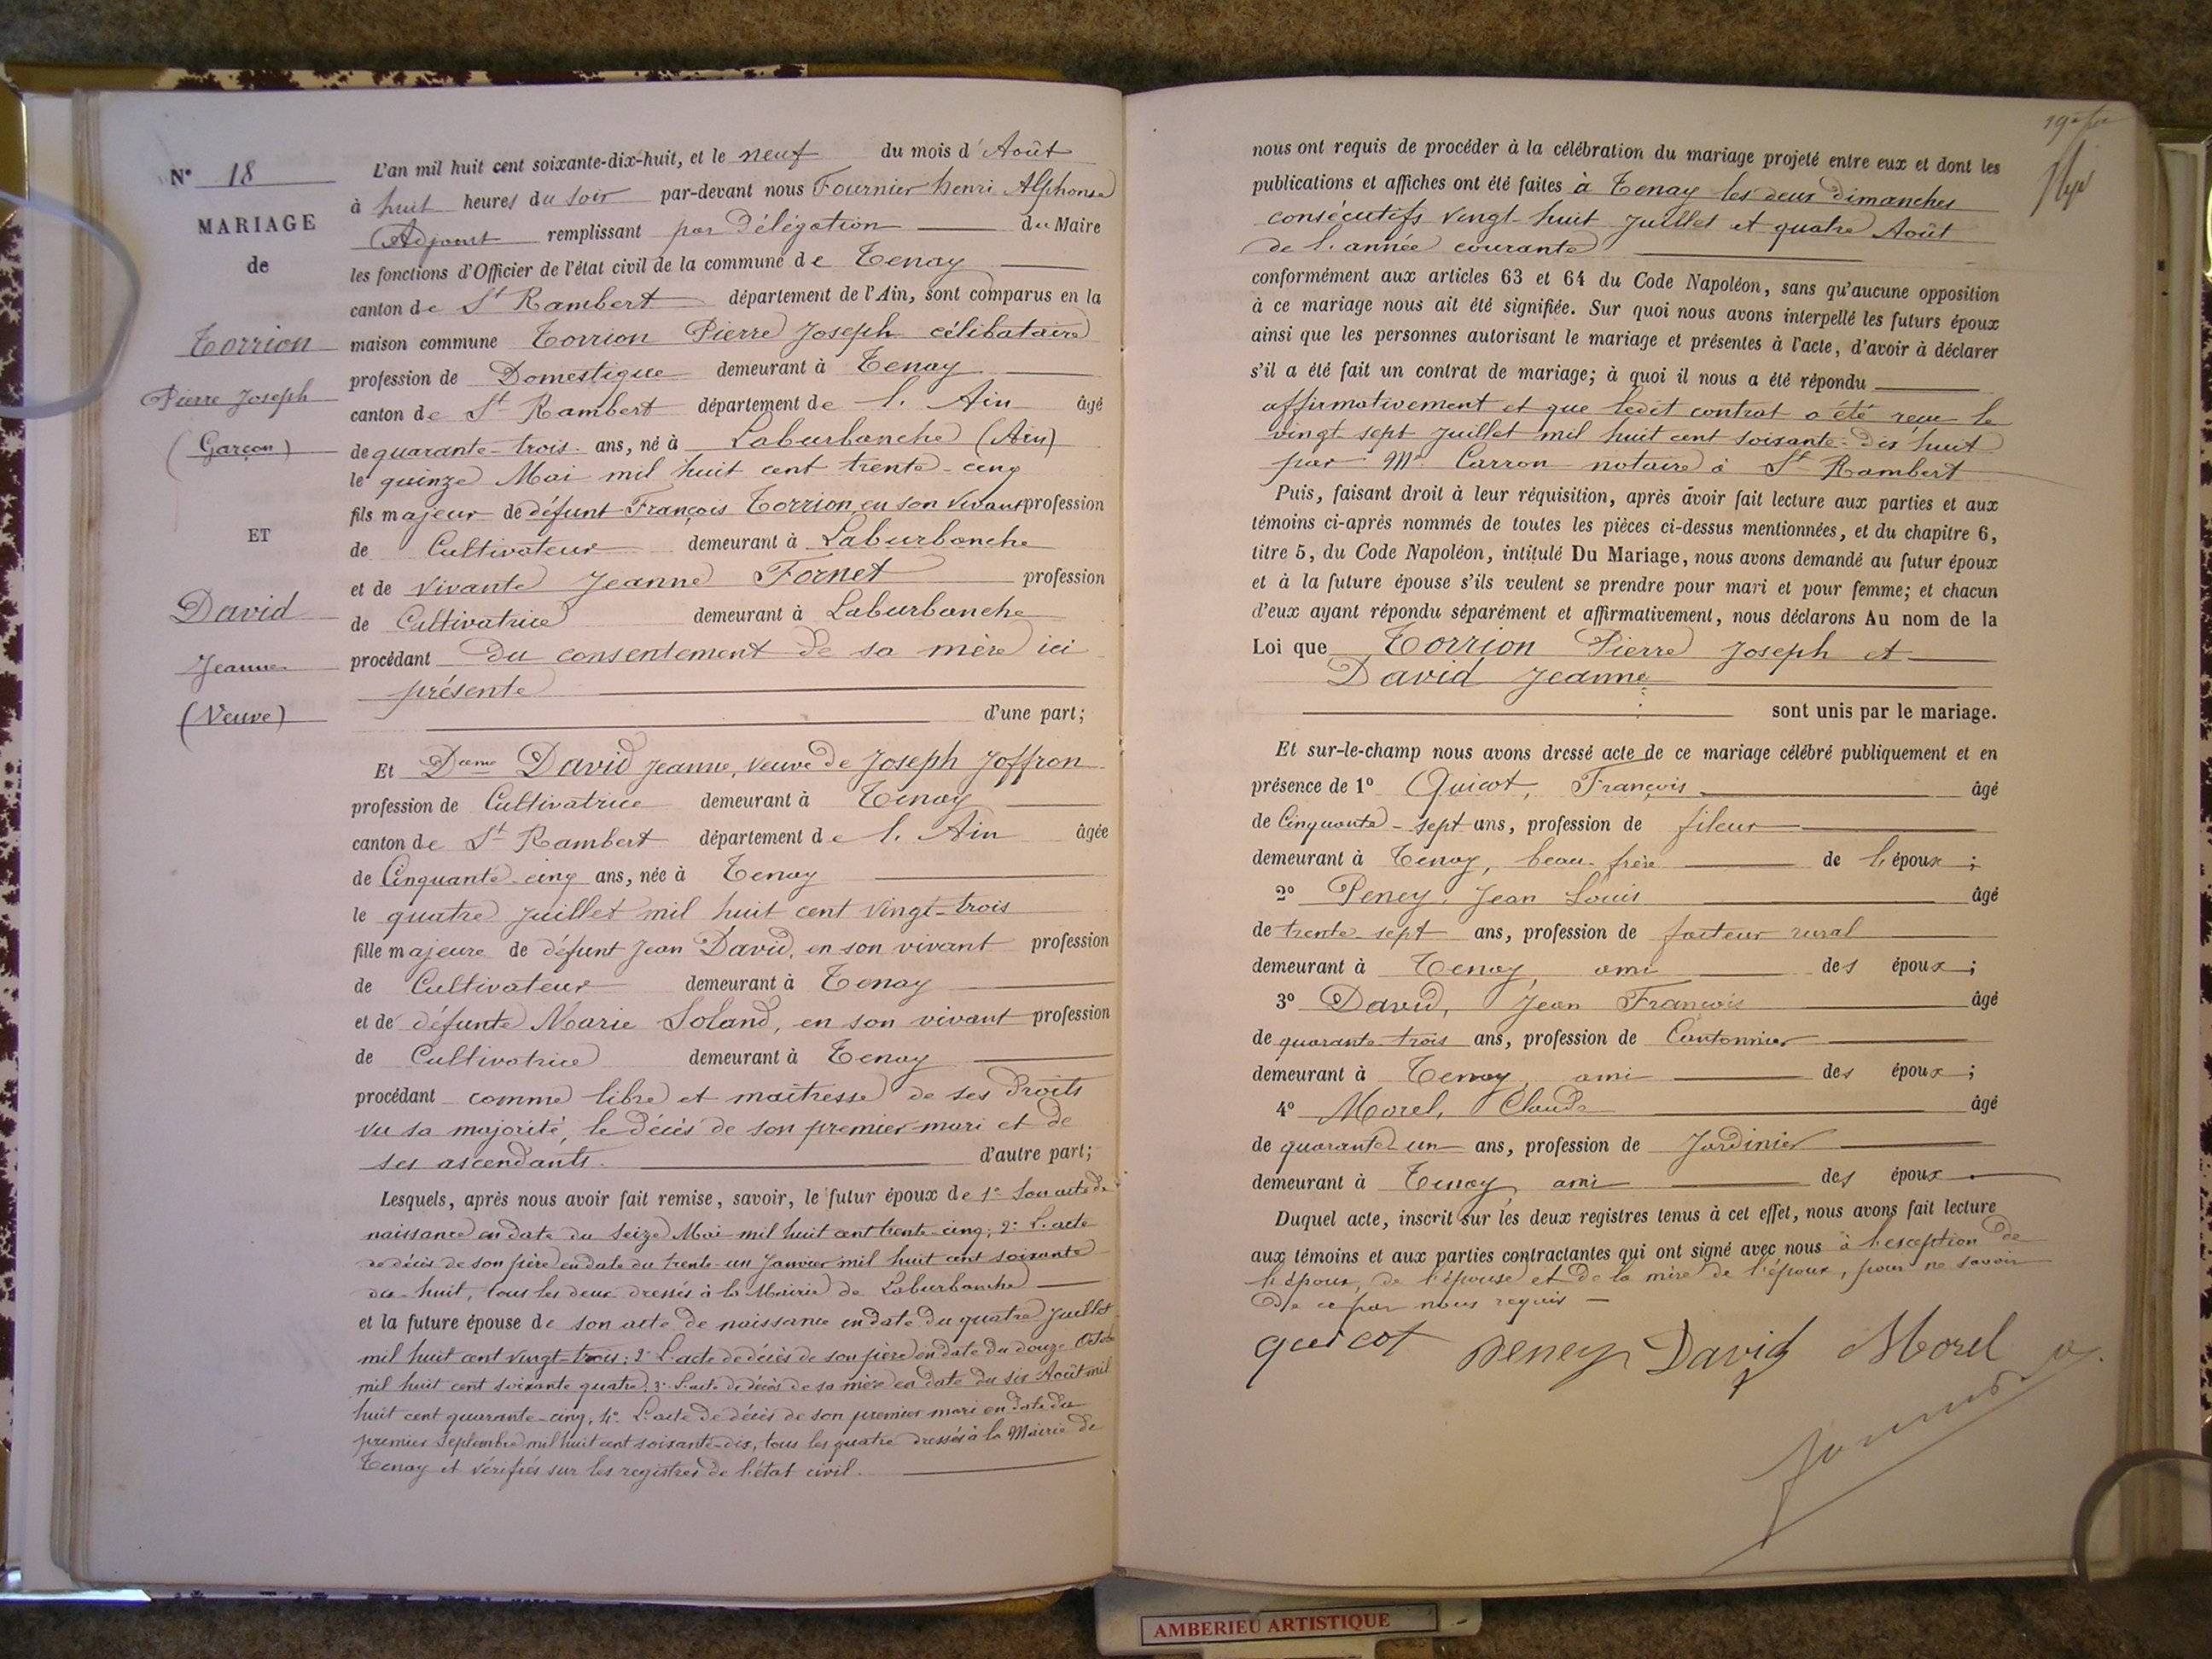 N° 18
MARIAGE
de
Torrion
Pierre Joseph
(Garçon)
ET
David
Jeanne
(Veuve)
L'an mil huit cent soixante-dix-huit, et le neuf du mois d'Août
à huit heures du soir par-devant nous Fournier Henri Alphonse
Adjoint remplissant par Délégation du Maire
les fonctions d'Officier de l'état civil de la commune de Tenay
canton de St Rambert département de l'Ain, sont comparus en la
maison commune Torrion Pierre Joseph célibataire
profession de Domestique demeurant à Tenay
canton de St Rambert département de l'Ain âgé
de quarante-trois ans, né à Laburbanche (Ain)
le quinze Mai mil huit cent trente-cinq
fils majeur de défunt François Torrion, en son vivant profession
de Cultivateur demeurant à Laburbanche
et de vivante Jeanne Fornet profession
de Cultivatrice demeurant à Laburbanche
procédant du consentement de sa mère ici
présente
d'une part;
Et Dame David Jeanne, veuve de Joseph Joffron
profession de Cultivatrice demeurant à Tenay
canton de St Rambert département de l'Ain âgée
de Cinquante-cinq ans, née à Tenay
le quatre Juillet mil huit cent vingt-trois
fille majeure de défunt Jean David, en son vivant profession
de Cultivateur demeurant à Tenay
et de défunte Marie Soland, en son vivant profession
de Cultivatrice demeurant à Tenay
procédant comme libre et maîtresse de ses droits
vu sa majorité, le décès de son premier mari et de
ses ascendants. d'autre part;
Lesquels, après nous avoir fait remise, savoir, le futur époux de 1° Son acte de
naissance en date du seize Mai mil huit cent trente-cinq; 2° L'acte
de décès de son père en date du trente-un Janvier mil huit cent soixante
dix-huit, tous les deux dressés à la Mairie de Laburbanche
et la future épouse de son acte de naissance en date du quatre Juillet
mil huit cent vingt-trois; 2° L'acte de décès de son père en date du douze Octobre
mil huit cent soixante quatre; 3° L'acte de décès de sa mère en date du six Août mil
huit cent quarante-cinq, 4° L'acte de décès de son premier mari en date du
premier Septembre mil huit cent soixante-dix, tous les quatre dressés à la Mairie de
Tenay et vérifiés sur les registres de l'état civil.
nous ont requis de procéder à la célébration du mariage projeté entre eux et dont les
publications et affiches ont été faites à Tenay les deux dimanches
consécutifs vingt-huit Juillet et quatre Août
de l'année courante
conformément aux articles 63 et 64 du Code Napoléon, sans qu'aucune opposition
à ce mariage nous ait été signifiée. Sur quoi nous avons interpellé les futurs époux
ainsi que les personnes autorisant le mariage et présentes à l'acte, d'avoir à déclarer
s'il a été fait un contrat de mariage; à quoi il nous a été répondu
affirmativement et que ledit contrat a été reçu le
vingt-sept Juillet mil huit cent soixante-dix huit
par Me Carron notaire à St Rambert
Puis, faisant droit à leur réquisition, après avoir fait lecture aux parties et aux
témoins ci-après nommés de toutes les pièces ci-dessus mentionnées, et du chapitre 6,
titre 5, du Code Napoléon, intitulé Du Mariage, nous avons demandé au futur époux
et à la future épouse s'ils veulent se prendre pour mari et pour femme; et chacun
d'eux ayant répondu séparément et affirmativement, nous déclarons Au nom de la
Loi que Torrion Pierre Joseph et
David Jeanne
sont unis par le mariage.
Et sur-le-champ nous avons dressé acte de ce mariage célébré publiquement et en
présence de 1° Quicot, François âgé
de Cinquante-sept ans, profession de fileur
demeurant à Tenay, beau-frère de l'époux;
2° Peney Jean Louis âgé
de trente-sept ans, profession de facteur rural
demeurant à Tenay ami des époux;
3° David, Jean François âgé
de quarante-trois ans, profession de Cantonnier
demeurant à Tenay ami des époux;
4° Morel, Claude âgé
de quarante-un ans, profession de Jardinier
demeurant à Tenay ami des époux
Duquel acte, inscrit sur les deux registres tenus à cet effet, nous avons fait lecture
aux témoins et aux parties contractantes qui ont signé avec nous à l'exception de
l'époux, de l'épouse et de la mère de l'époux, pour ne savoir
de ce par nous requis
quicot peney David Morel
AMBERIEU ARTISTIQUE